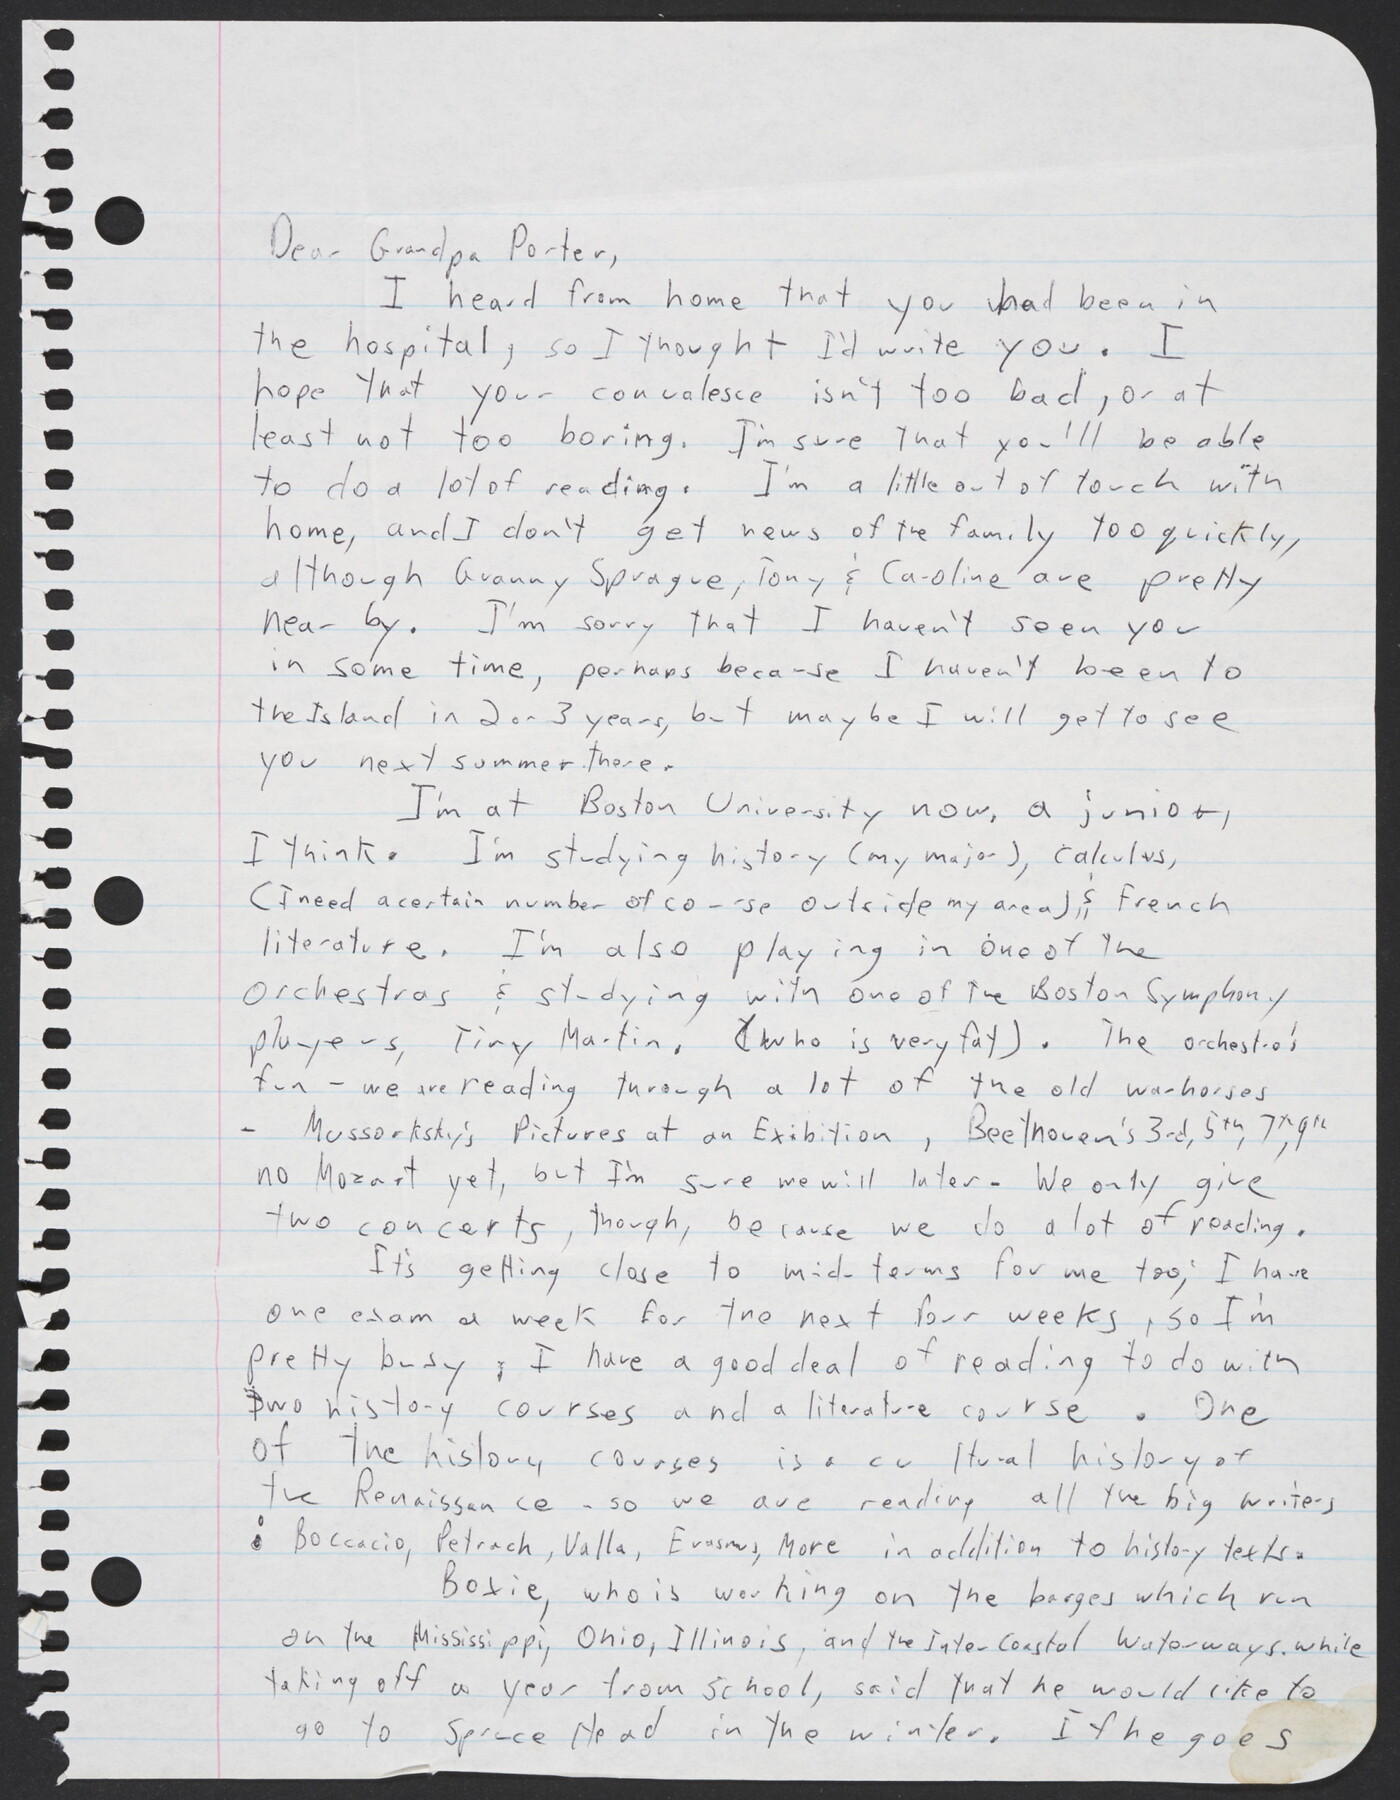 Dear Grandpa Porter,
I heard from home that you had been in
the hospital, so I thought I'd write you. I
hope that your convalesce isn't too bad, or at
least not too boring. I'm sure that you'll be able
to do a lot of reading. I'm a little out of touch with
home, and I don't get news of the family too quickly,
although Granny Sprague, Tony & Caroline are pretty
near by. I'm sorry that I haven't seen you
in some time, perhaps because I haven't been to
the Island in 2 or 3 years, but maybe I will get to see
you next summer there.
I'm at Boston University now, a junior,
I think. I'm studying history (my major), calculus,
(I need a certain number of course outside my area), & French
literature. I'm also playing in one of the
orchestras & studying with one of the Boston Symphony
players, Tiny Martin. (who is very fat). The orchestra's
fun - we are reading through a lot of the old warhorses
- Mussorksky's Pictures at an Exibition, Beethoven's 3rd, 5th, 7th, 9th
no Mozart yet, but I'm sure we will later. We only give
two concerts, though, because we do a lot of reading.
It's getting close to mid-terms for me too; I have
one exam a week for the next four weeks, so I'm
pretty busy; I have a good deal of reading to do with
two history courses and a literature course. One
of the history courses is a cultural history of
the Renaissance - so we are reading all the big writers
: Boccacio, Petrach, Valla, Erasmus, More in addition to history texts.
Boxie, who is working on the barges which run
on the Mississippi, Ohio, Illinois, and the Inter-Coastal Waterways. while
taking off a year from school, said that he would like to
go to Spruce Head in the winter. If he goes